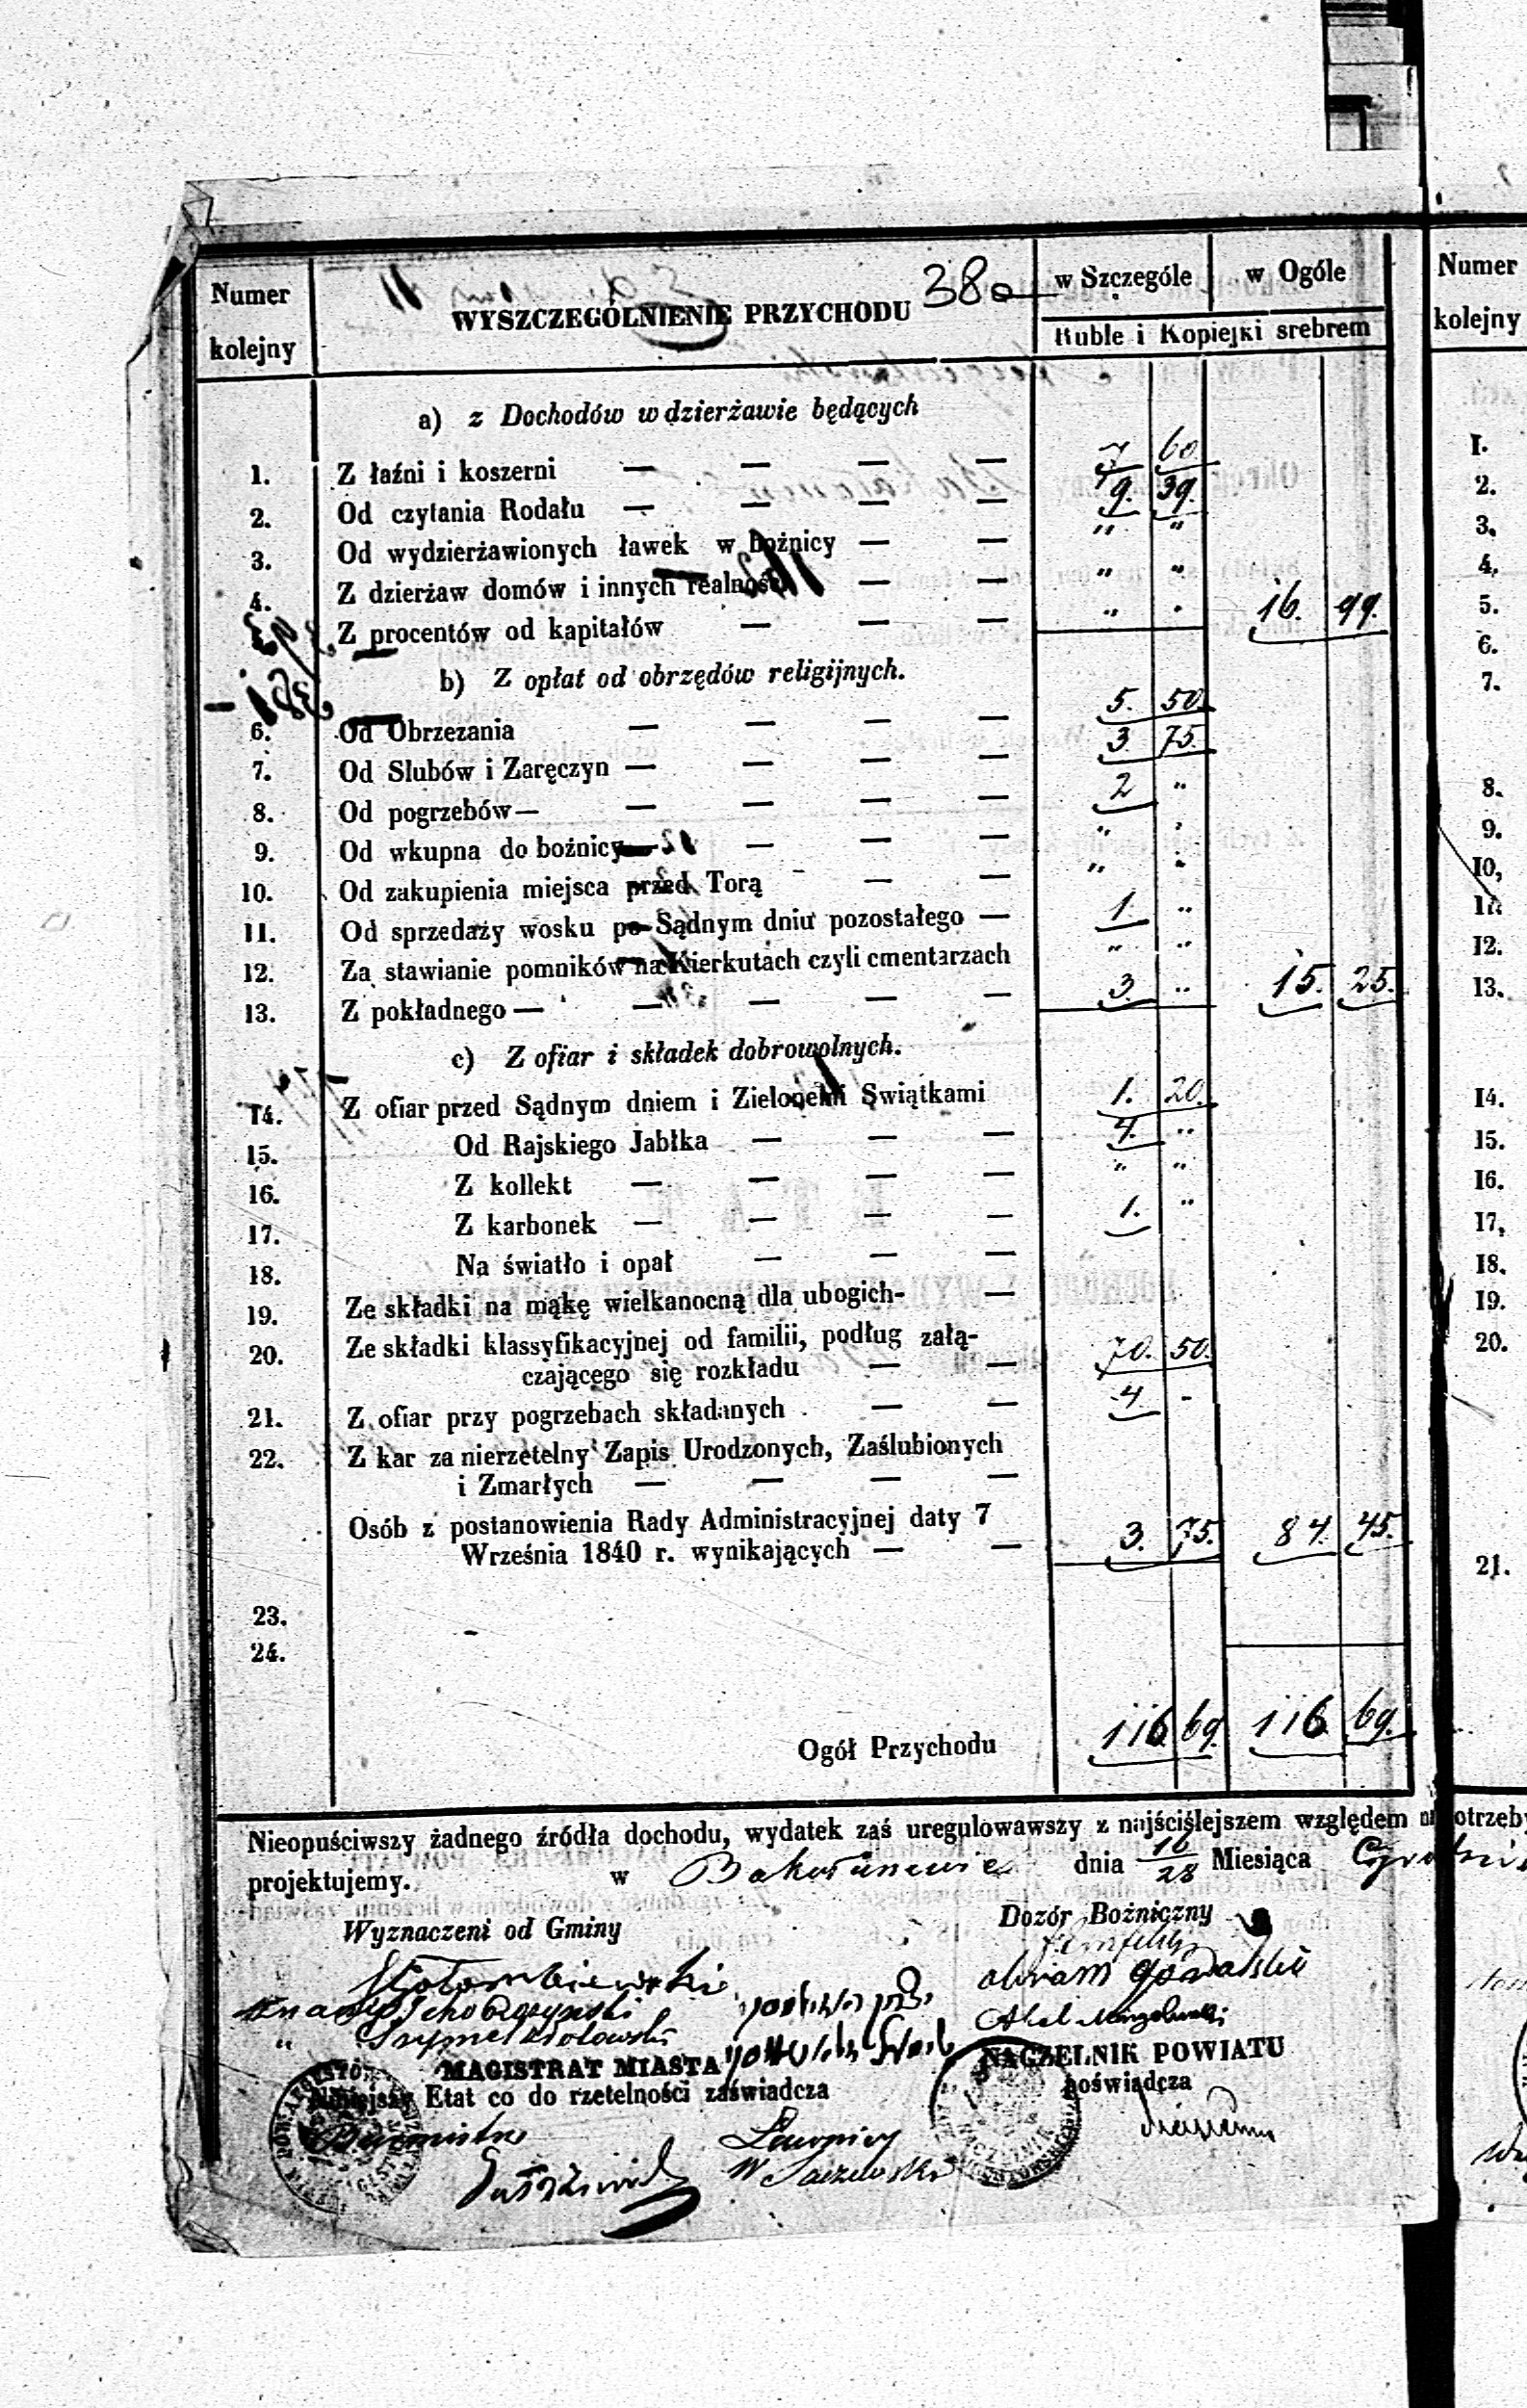 Numer kolejny WYSZCZEGÓLNIENIE PRZYCHODU 380 w Szczególe w Ogóle
Ruble i Kopiejki srebrem
a) z Dochodów w dzierżawie będących
1. Z łaźni i koszerni — — — — 7 60
2. Od czytania Rodału — — — — 9. 39.
3. Od wydzierżawionych ławek w bożnicy — — " "
4. Z dzierżaw domów i innych realności — — " "
Z procentów od kapitałów — — — " " 16. 99.
b) Z opłat od obrzędów religijnych.
6. Od Obrzezania — — — — 5. 50.
7. Od Slubów i Zaręczyn — — — — 3 75.
8. Od pogrzebów — — — — — 2 "
9. Od wkupna do bożnicy — — — — " "
10. Od zakupienia miejsca przed Torą — — " "
11. Od sprzedaży wosku po Sądnym dniu pozostałego — 1. "
12. Za stawianie pomników na Kierkutach czyli cmentarzach " "
13. Z pokładnego — — — — — 3. " 15. 25.
c) Z ofiar i składek dobrowolnych.
14. Z ofiar przed Sądnym dniem i Zielonemi Swiątkami 1. 20.
15. Od Rajskiego Jabłka — — — 4. "
16. Z kollekt — — — — " "
17. Z karbonek — — — — 1. "
18. Na światło i opał — — —
19. Ze składki na mąkę wielkanocną dla ubogich — —
20. Ze składki klassyfikacyjnej od familii, podług załą-
czającego się rozkładu — — 70. 50.
21. Z ofiar przy pogrzebach składanych — — 4 -
22. Z kar za nierzetelny Zapis Urodzonych, Zaślubionych
i Zmarłych — — — —
Osób z postanowienia Rady Administracyjnej daty 7
Września 1840 r. wynikających — — 3. 75. 84. 45.
23.
24.
Ogół Przychodu 116 69. 116 69.
Nieopuściwszy żadnego źródła dochodu, wydatek zaś uregulowawszy z najściślejszem względem
projektujemy. w Bakałarzewie dnia 16/28 Miesiąca
Wyznaczeni od Gminy Dozór Bożniczny
MAGISTRAT MIASTA NACZELNIK POWIATU
Niniejszy Etat co do rzetelności zaświadcza poświadcza
Burmistrz Ławnicy
Numer
kolejny
1.
2.
3.
4.
5.
6.
7.
8.
9.
10,
11.
12.
13.
14.
15.
16.
17,
18.
19.
20.
21.